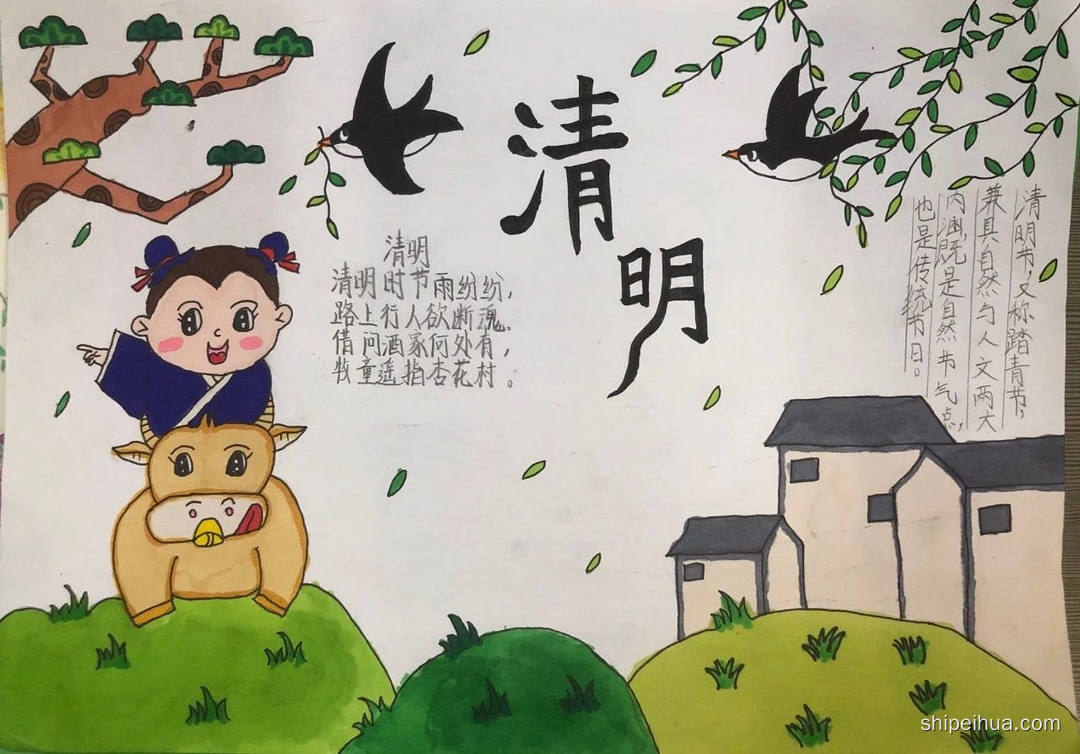 清
明
清明
清明时节雨纷纷，
路上行人欲断魂。
借问酒家何处有，
牧童遥指杏花村。
清明节，又称踏青节，
兼具自然与人文两大
内涵，既是自然节气点，
也是传统节日。
shipeihua.com